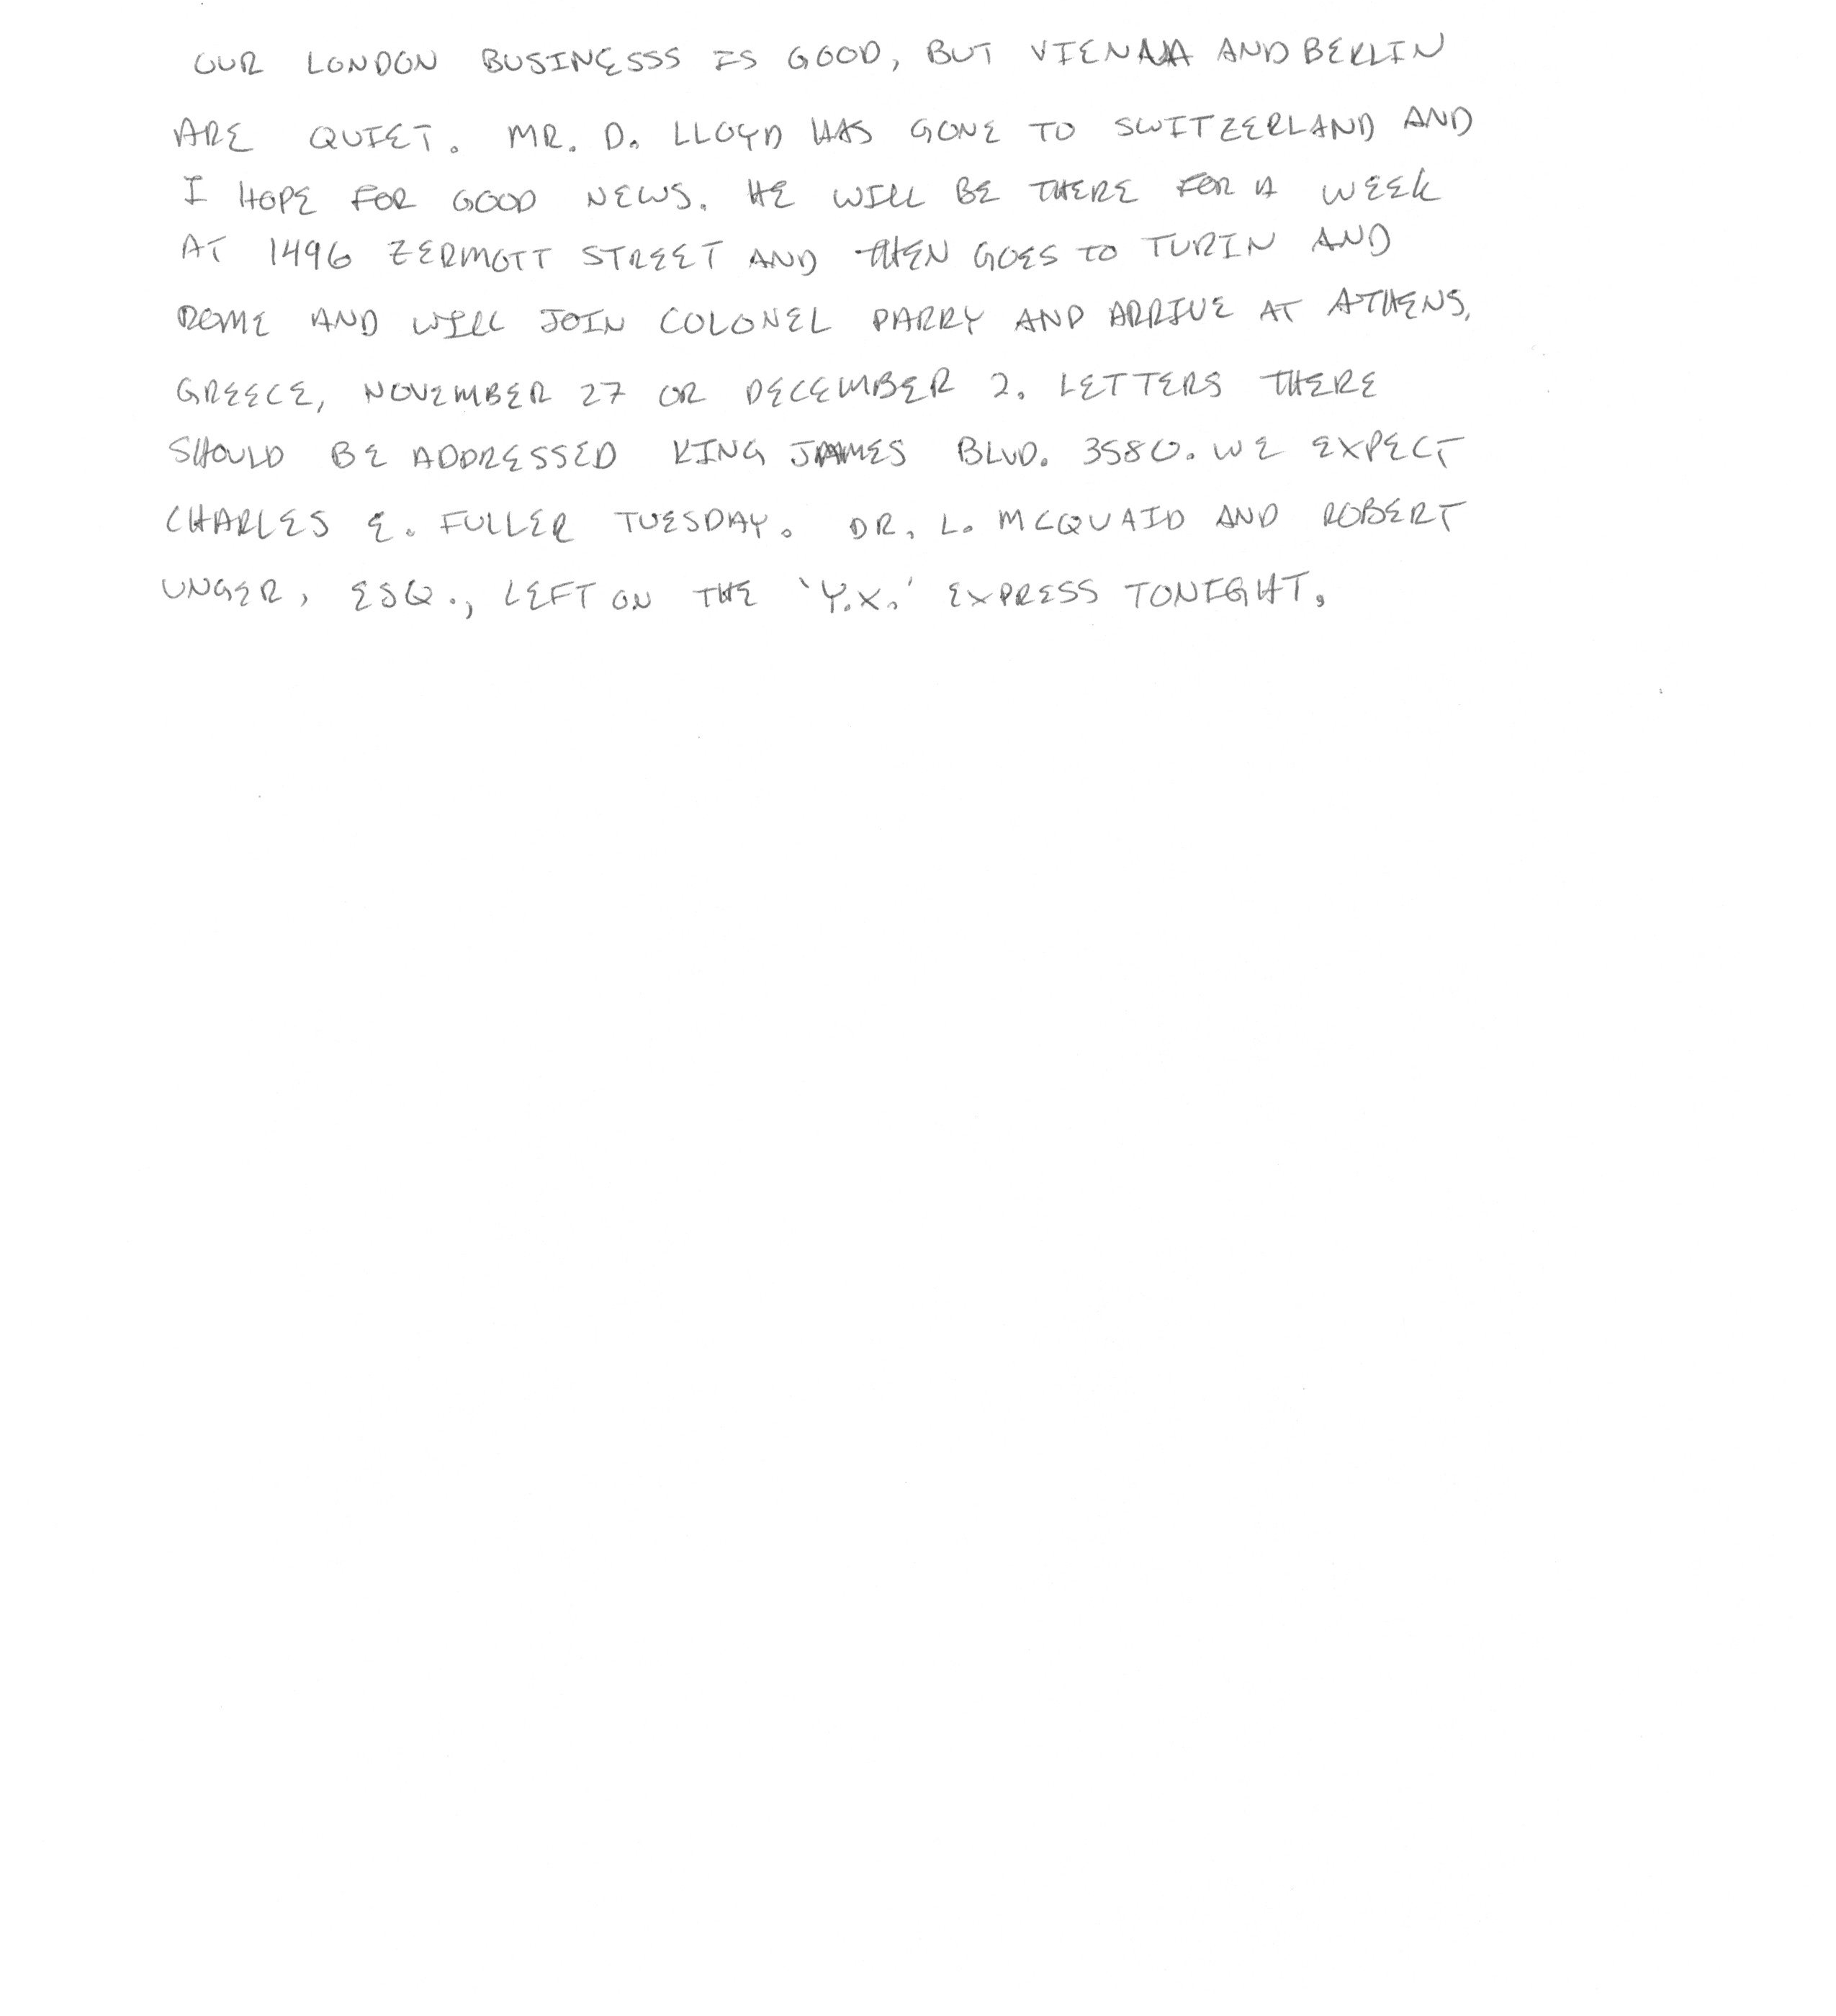 OUR LONDON BUSINESSS IS GOOD, BUT VIENNA AND BERLIN
ARE QUIET. MR. D. LLOYD HAS GONE TO SWITZERLAND AND
I HOPE FOR GOOD NEWS. HE WILL BE THERE FOR A WEEK
AT 1496 ZERMOTT STREET AND THEN GOES TO TURIN AND
ROME AND WILL JOIN COLONEL PARRY AND ARRIVE AT ATHENS,
GREECE, NOVEMBER 27 OR DECEMBER 2. LETTERS THERE
SHOULD BE ADDRESSED KING JAMES BLVD. 3580. WE EXPECT
CHARLES E. FULLER TUESDAY. DR. L. MCQUAID AND ROBERT
UNGER, ESQ., LEFT ON THE 'Y.X.' EXPRESS TONIGHT.